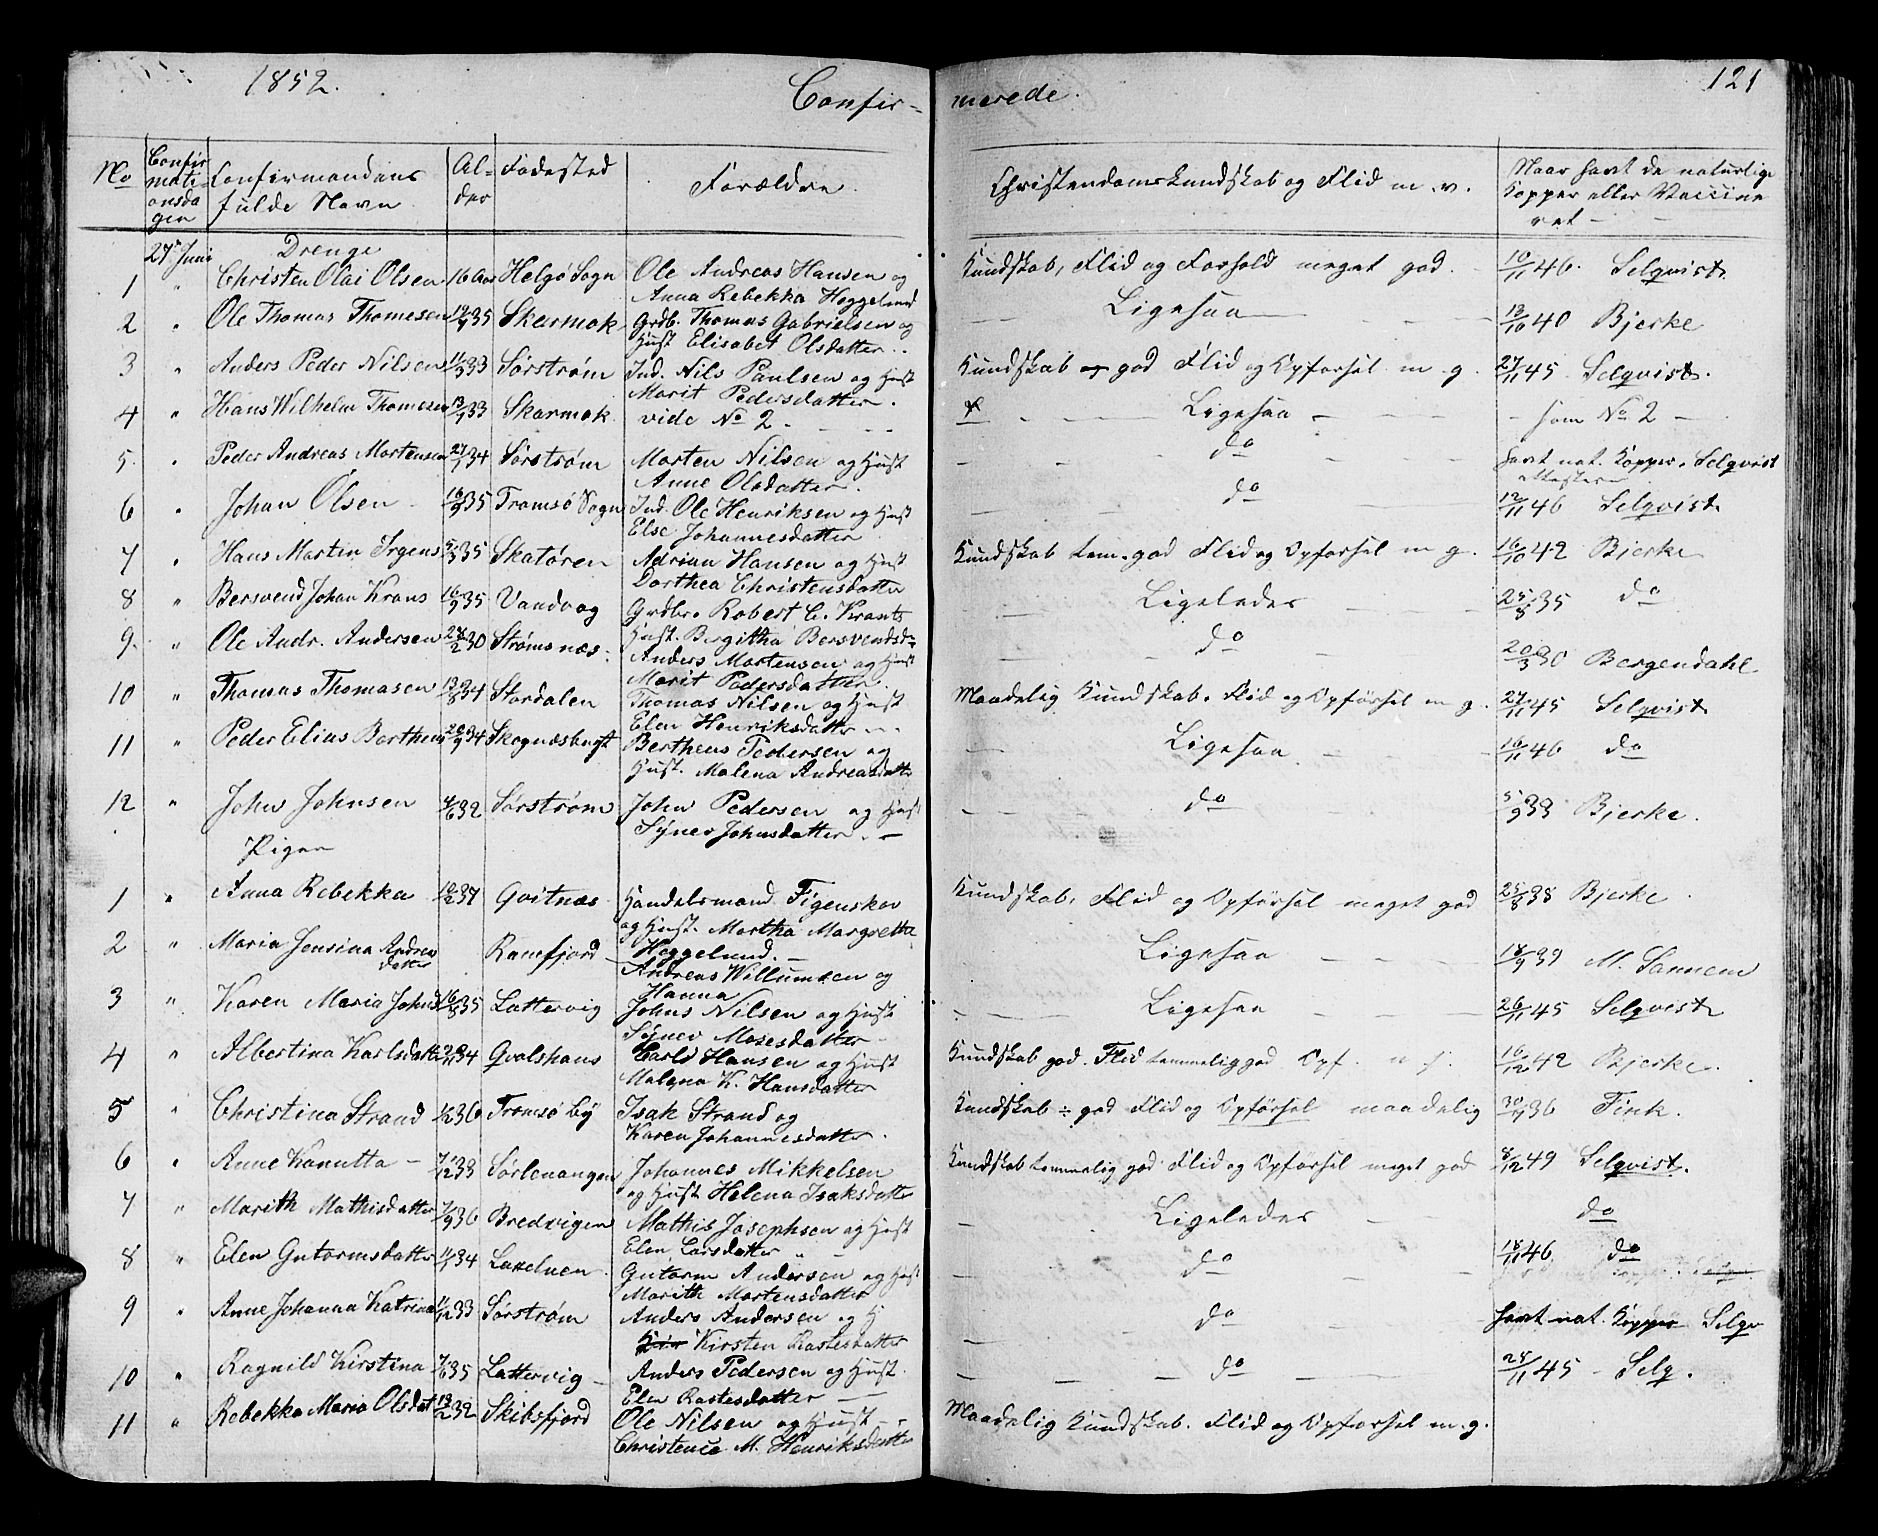 1852.
Confir-
merede.
121
No
Confir
mati-
onsda
gen
Confirmandens
fulde Navn
Al-
der
Fødested
Forældre.
Christendomskundskab og Flid m. v.
Naar havt de naturlige
Kopper eller Vaccine
ret
27 Juni Drenge
1 " Christen Olai Olsen 16 Aar Helgø Sogn Ole Andreas Hansen og Kundskab, Flid og Forhold meget god. 10/11 46. Selqvist
Anna Rebekka Heggelund
2 " Ole Thomas Thomesen 35 Skarmok Grdb. Thomas Gabrielsen og — Ligesaa — 13/10 40 Bjerke
Hust Elisabet Olsdatter
3 " Anders Peder Nilsen 33 Sørstrøm Ind. Nils Paulsen og Hust Kundskab god Flid og Opførsel m. g. 27/11 45 Selqvist.
Marit Pedersdatter.
4 " Hans Wilhelm Thomesen 33 Skarmok vide No 2. — Ligesaa — - som No 2 -
5. " Peder Andreas Mortensen 34 Sørstrøm Morten Nilsen og Hust — do — havt nat. Kopper. Selqvist
Anne Olsdatter.
6 " Johan Olsen 16/9 35 Tromsø Sogn Ind. Ole Henriksen og Hust — do — 12/11 46 Selqvist
Else Johannesdatter
7 " Hans Martin Irgens 5/3 35 Skatøren Adrian Hansen og Hust Kundskab tem. god Flid og Opførsel m g. 16/10 42 Bjerke
Dorthea Christensdatter
8 " Bersvend Johan Krans 16/9 35 Vandvog Grdbr. Robert C. Krantz — Ligeledes — 25/8 35 do
Hust. Birgitha Bersvendsd.
9. " Ole Andr. Andersen 28/2 30 Strømsnæs Anders Mortensen og Hust — do — 20/3 30 Bergendahl
Marit Pedersdatter.
10 " Thomas Thomasen 13/8 34 Stordalen Thomas Nilsen og Hust Maadelig Kundskab. Flid og Opførsel m g. 27/11 45 Selqvist
Elen Henriksdatter
11 " Peder Elias Bertheus 20/9 34 Skognæsbugt Bertheus Pedersen og — Ligesaa — 16/11 46 do
Hust. Malena Andreasdatter
12 " John Johnsen 32 Sørstrøm John Pedersen og Hust — do — 5/9 33 Bjerke.
Synev Johnsdatter. —
Piger
1 " Anna Rebekka 37 Gvitnæs Handelsmand Figenskov Kundskab, Flid og Opførsel meget god 25/8 38 Bjerke
og Hust. Martha Margretha
Heggelund. —
2 " Maria Jensina Andreas
datter Ramfjord Andreas Willumsen og — Ligesaa — 18/9 39 M. Sannem
Hanna
3 " Karen Maria Johnsd 16/8 35 Lattervig Johns Nilsen og Hust — Ligesaa — 26/11 45 Selqvist
Synev Mosesdatter
4 " Albertina Karlsdatter 34 Gvalshaus Carld Hansen og Hust Kundskab god. Flid temmelig god Opf. 16/12 42 Bjerke.
Malena K. Hansdatter
5 " Christina Strand 36 Tromsø By Isak Strand og Kundskab ÷ god Flid og Opførsel maadelig 36 Fink.
Karen Johannesdatter.
6 " Anne Kanutta — 7/12 33 Sørlenangen Johannes Mikkelsen Kundskab temmelig god Flid og Opførsel meget god 8/12 49 Selqvist.
og Hust Helena Isaksdatter
7 " Marith Mathisdatter 7/9 36 Bredvigen Mathis Josephsen og Hust — Ligeledes — do
Elen Larsdatter
8 " Elen Gutormsdatter 34 Laxelven Gutorm Andersen og Hust — do — 18/11 46 do
Marith Mortensdatter
9 " Anne Johanna Katrina 11/12 33 Sørstrøm Anders Andersen og H — do — havt nat. Kopper Selqv
Kirsten Rastesdatter
10 " Ragnild Kirstina 35 Lattervig Anders Pedersen og Hust. — do — 25/11 45 - Selq.
Elen Rastesdatter —
11 " Rebekka Maria Olsdat 13/2 32 Skibsfjord Ole Nilsen og Hust — Maadelig Kundskab. Flid og Opførsel m. g.
Christence M. Henriksdatter